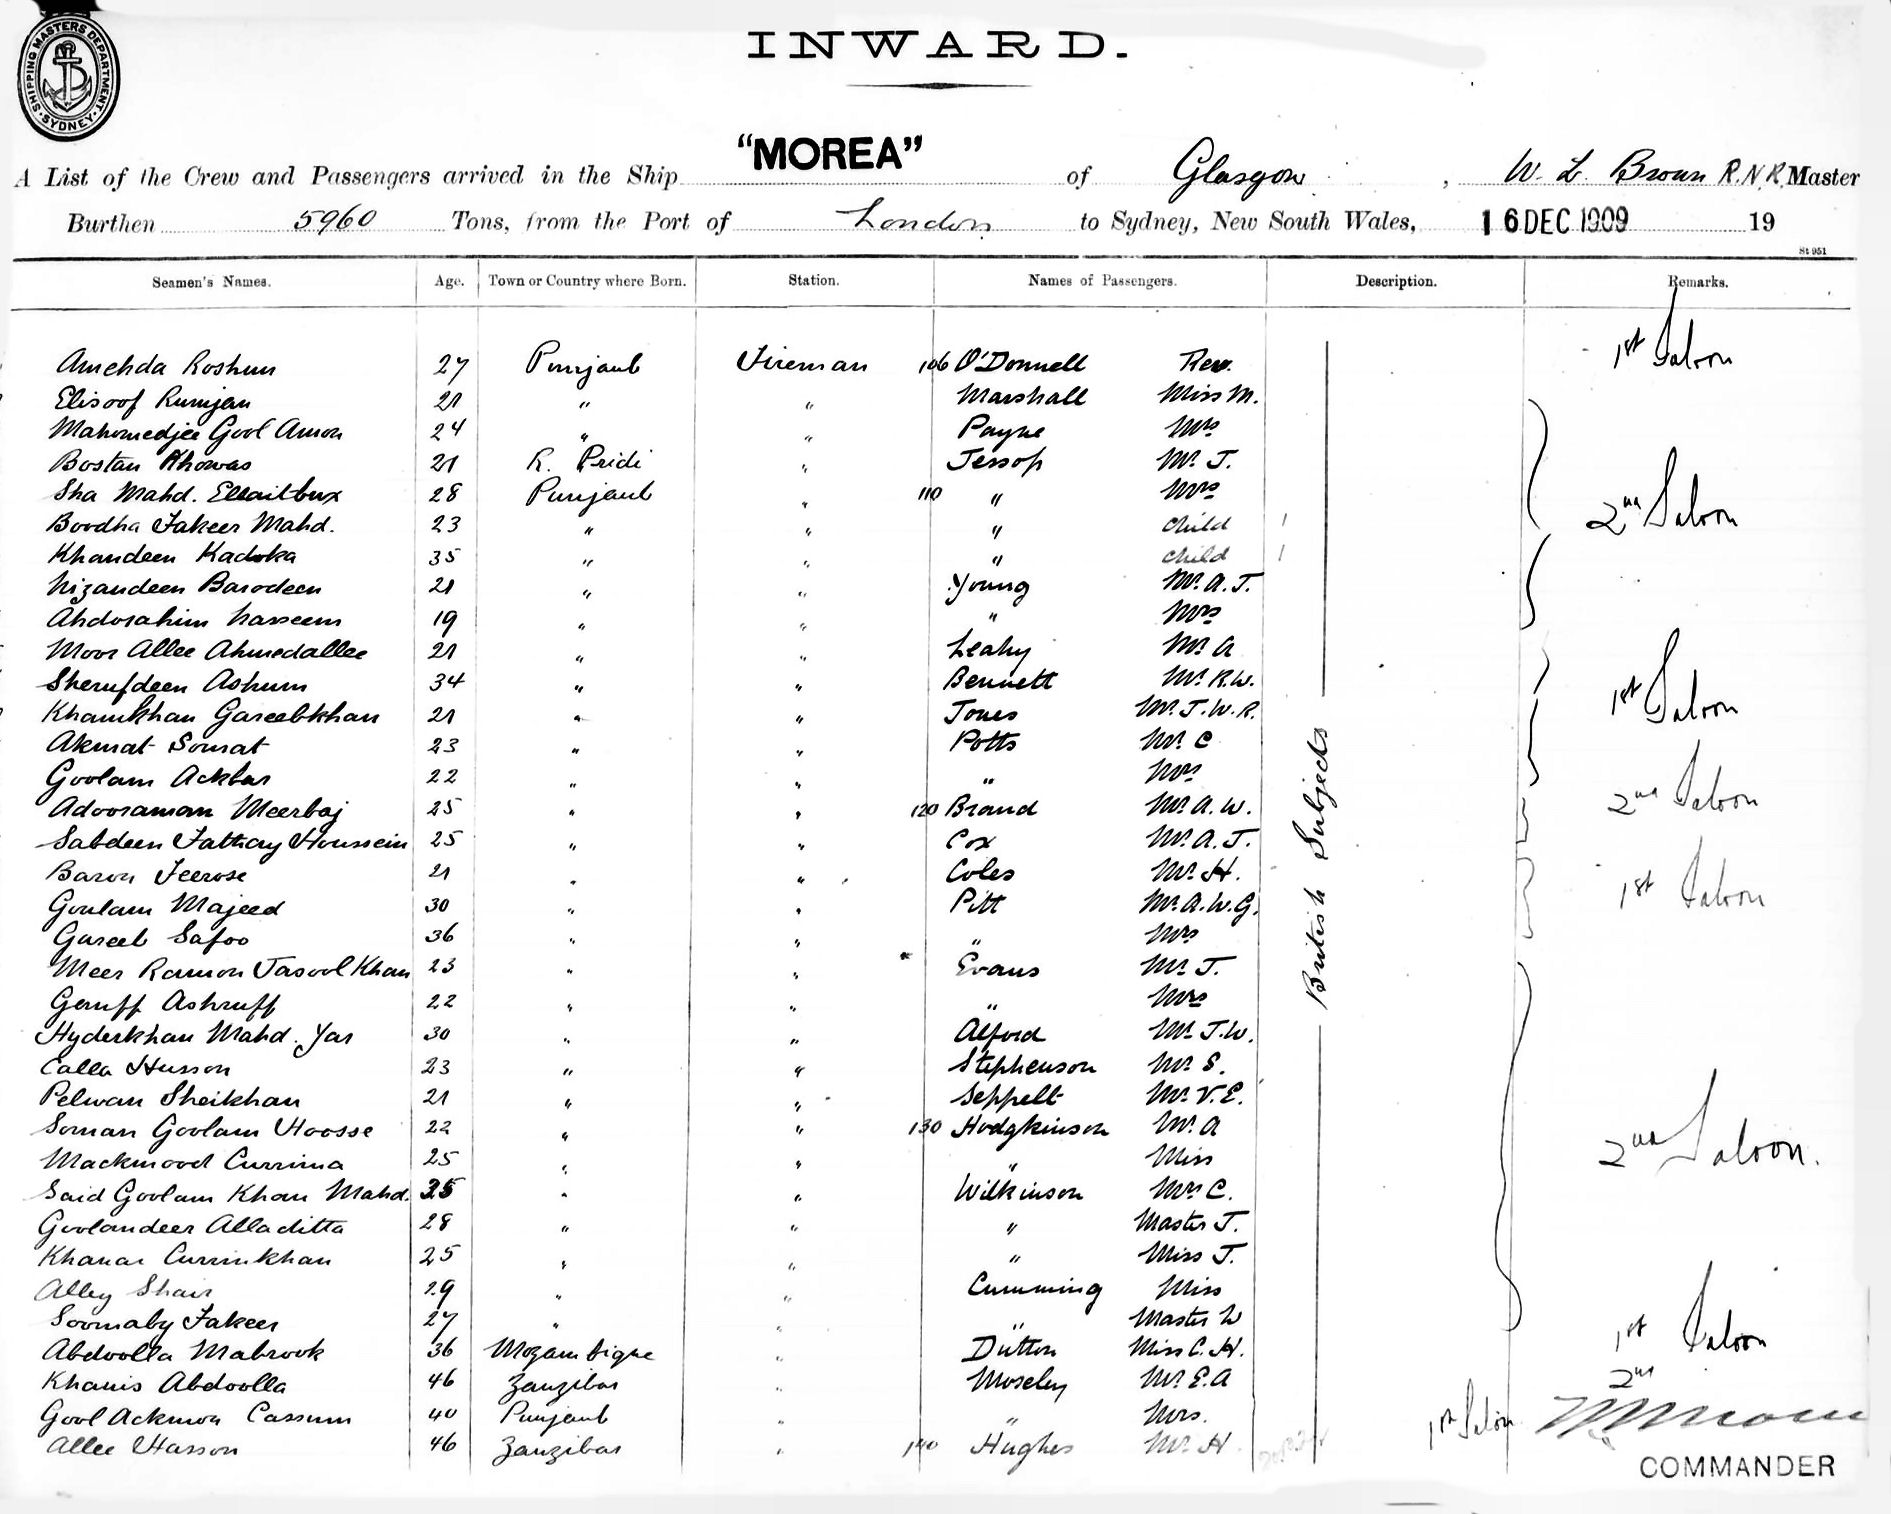 SHIPPING MASTERS DEPARTMENT. SYDNEY.
INWARD.
A List of the Crew and Passengers arrived in the Ship "MOREA" of Glasgow, W. L. Brown R.N.R. Master
Burthen 5960 Tons, from the Port of London to Sydney, New South Wales, 16 DEC 1909 19
St 951
Seamen's Names. Age. Town or Country where Born. Station. Names of Passengers. Description. Remarks.
Amehda Roshun 27 Punjaub Fireman 106 O'Donnell Rev. 1st Saloon
Elisoof Rumjan 21 " " Marshall Miss M.
Mahomedjee Gool Amon 24 " " Payne Mrs
Bostan Khowas 21 R. Pridi " Jessop Mr. J.
Sha Mahd. Ellaitbux 28 Punjaub " 110 " Mrs 2nd Saloon
Boodha Fakeer Mahd. 23 " " " child 1
Khandeen Kadoka 35 " " " child 1
Nizandeen Barodeen 21 " " Young Mr. A. J.
Ahdorahim Nasseem 19 " " " Mrs
Moor Allee Ahmedallee 21 " " Leahy Mr. A
Sherufdeen Ashum 34 " " Bennett Mr. R.W. 1st Saloon
Khamkhan Gareebkhan 21 " " Jones Mr. J. W. R.
Akmat Somat 23 " " Potts Mr. C
Goolam Ackbar 22 " " " Mrs
Adooraman Meerbaj 25 " " 120 Brand Mr. A. W. 2nd Saloon
Sabdeen Fathay Houssein 25 " " Cox Mr. A. J.
Baron Feerose 21 " " Coles Mr. H. 1st Saloon
Goulam Majeed 30 " " Pitt Mr. A. W. G.
Gareeb Safoo 36 " " " Mrs
Meer Ramon Jasool Khan 23 " " Evans Mr. J.
Geruff Ashruff 22 " " " Mrs
Hyderkhan Mahd. Yar 30 " " Alford Mr. J. W.
Calla Husson 23 " " Stephenson Mr. S.
Pelwan Sheikhan 21 " " Seppelt Mr. V. E.
Soman Goolam Hoosse 22 " " 130 Hodgkinson Mr. A
Mackmood Currima 25 " " " Miss 2nd Saloon.
Said Goolam Khan Mahd. 35 " " Wilkinson Mrs C.
Goolandeer Alladitta 28 " " " Master J.
Khanar Currimkhan 25 " " " Miss J.
Alley Shair 29 " " Cumming Miss
Soomaby Fakeer 27 " " " Master W
Abdoolla Mabrook 36 Mozambique " Dutton Miss C. H. 1st Saloon
Khamis Abdoolla 46 Zanzibar " Moseley Mr. E. A 2nd
Gool Ackmon Cassum 40 Punjaub " " Mrs.
Allee Hasson 46 Zanzibar " 140 Hughes Mr. H 1st Saloon
British Subjects
COMMANDER